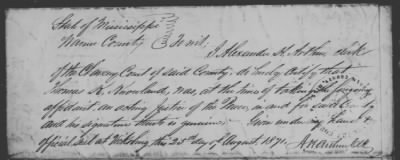 State of Mississippi
Warren County } To wit;
I Alexander H. Arthur Clerk
of the Chancery Court of said County, do hereby certify that
Thomas R. was, at the time of taking the foregoing
affidavit, an acting Justice of the Peace, in and for said County
and his signature thereto is genuine. Given under my hand &
official seal at Vicksburg this 25th day of August, 1871
A H Arthur Clk